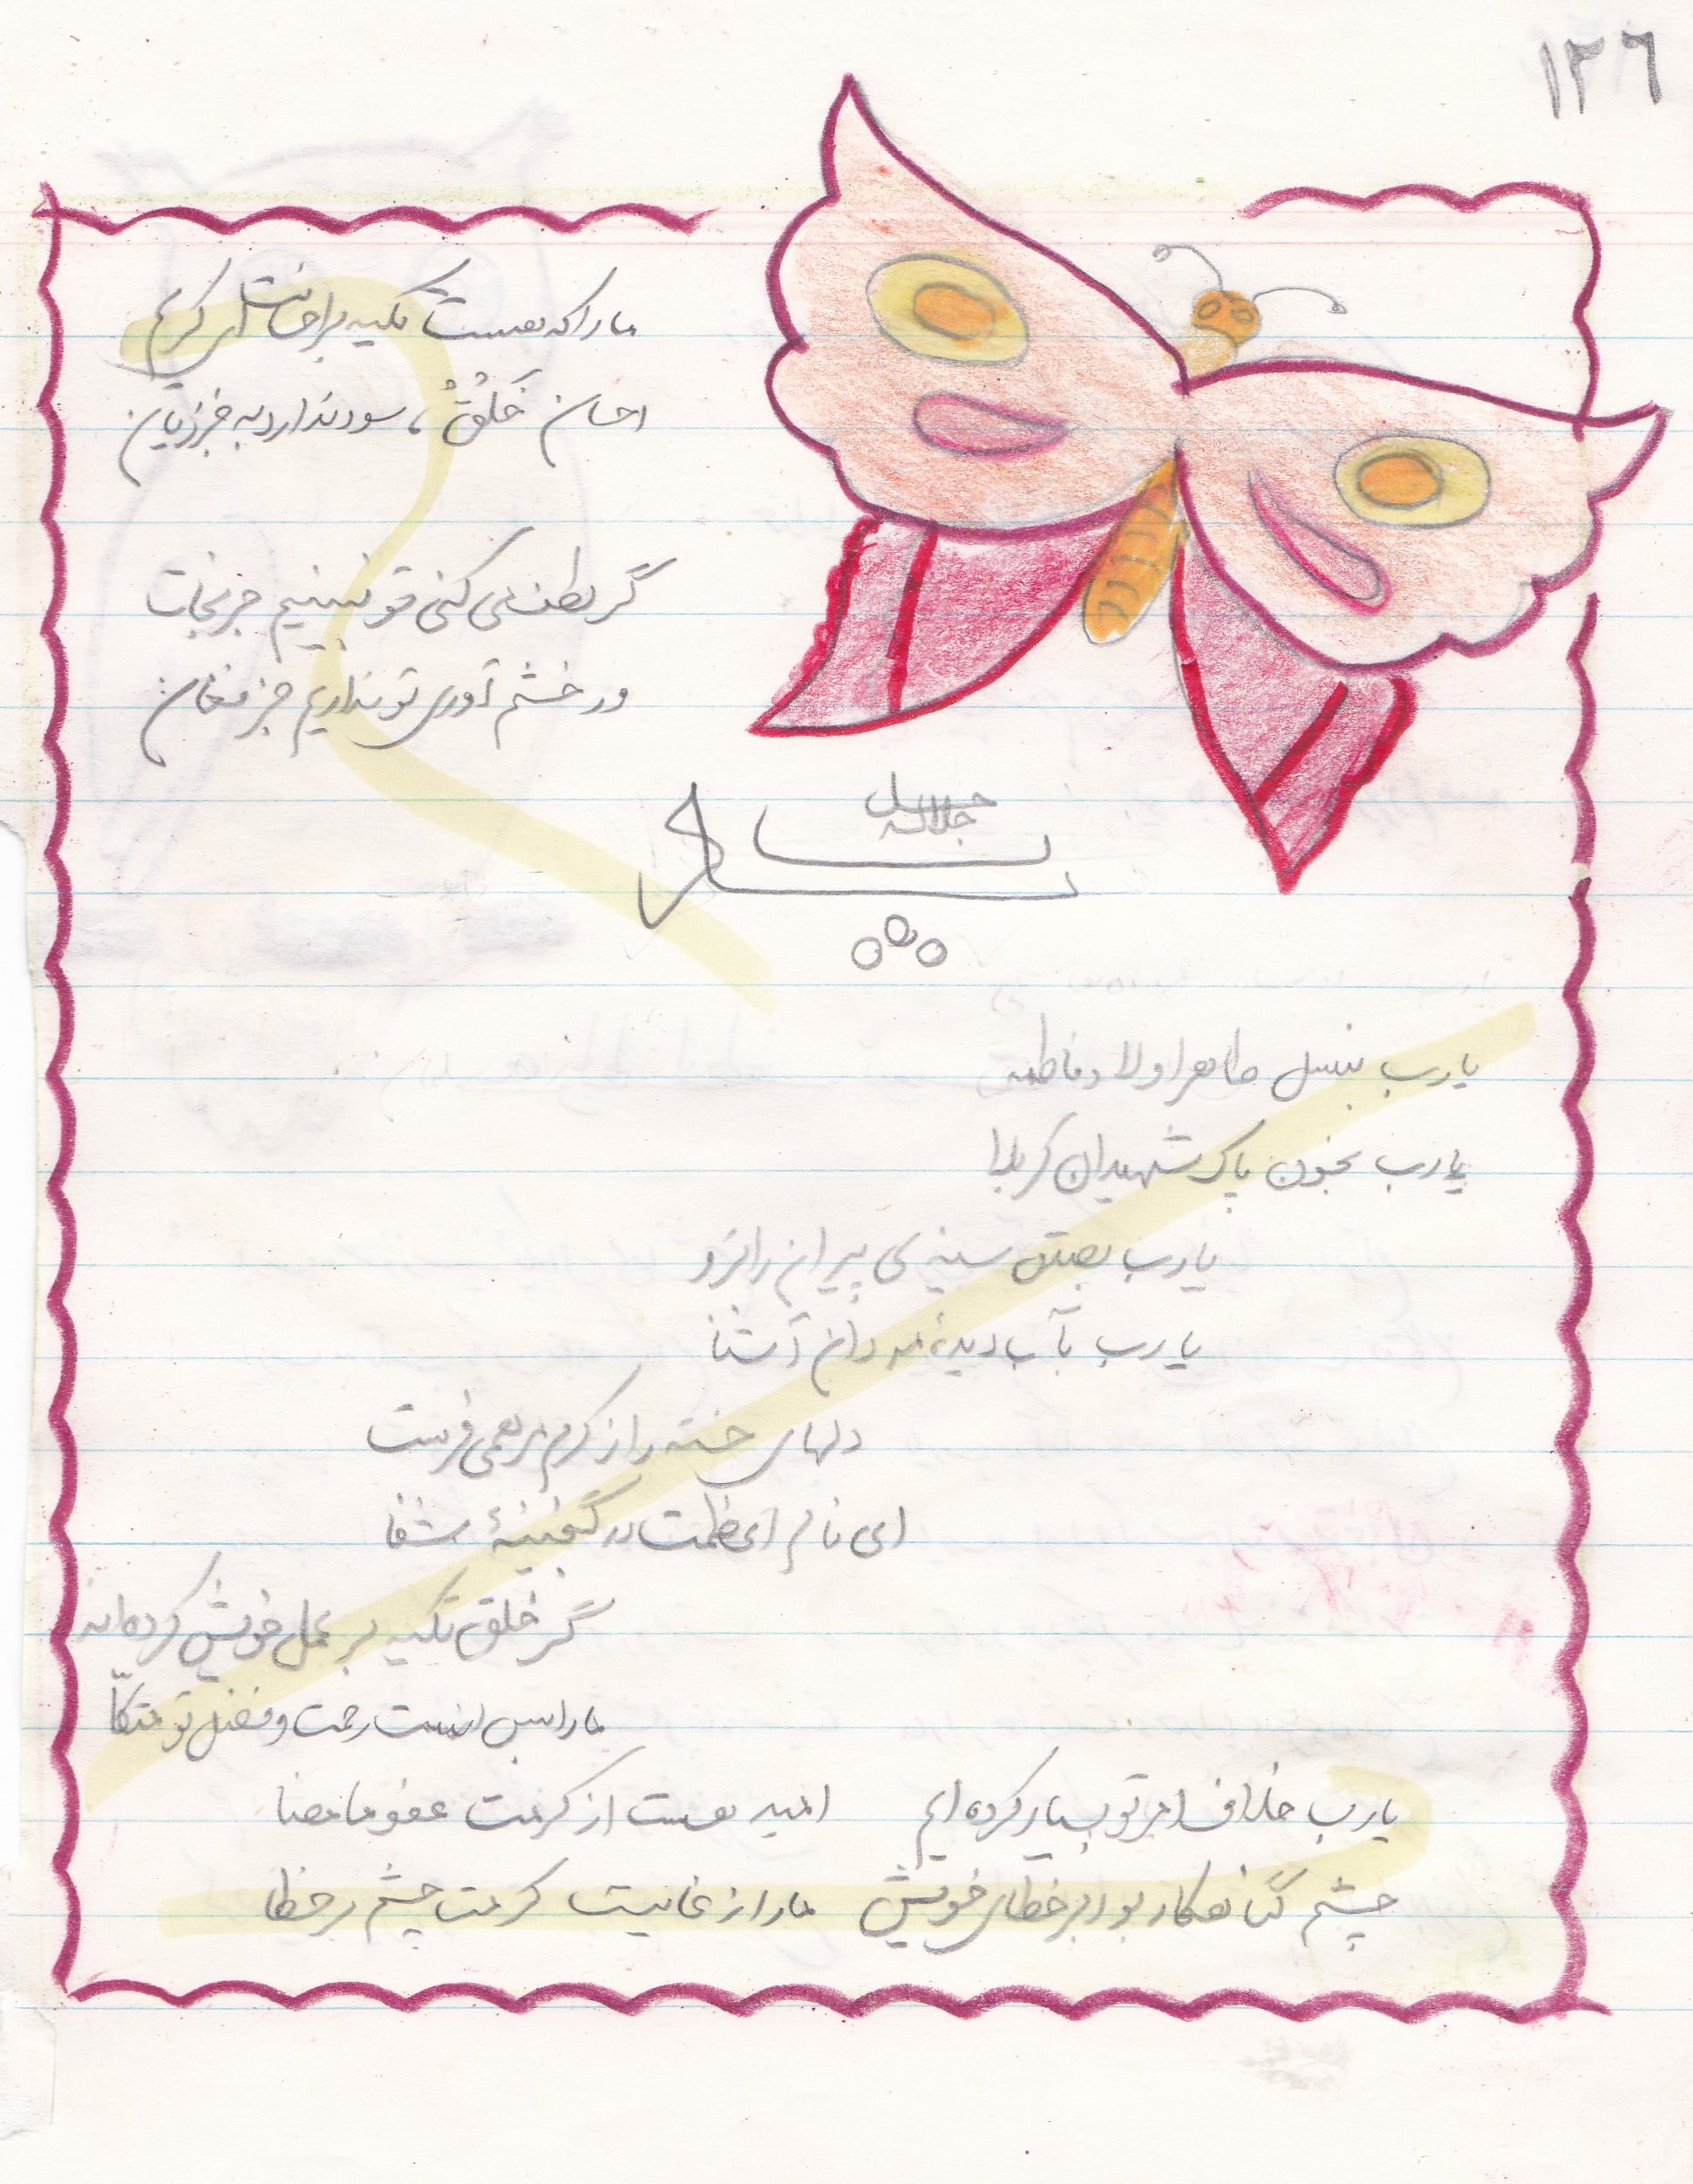 ۱۲۶
ما را که هست تکیه بر احسانت ای کریم
احسان خلق، سود ندارد به جز زیان
گر لطف می کنی تو نبینیم جز نجات
ور خشم آوری تو نداریم جز فغان
جل جلاله
یارب بنسل طاهر اولاد فاطمه
یارب بخون پاک شهیدان کربلا
یارب بصدق سینه ی پیران راتزو
یارب بآب دیدهٔ مردان آشنا
دلهای خسته را ز کرم مرهمی فرست
ای نام اعظمت در گنجینهٔ شفا
گر خلق تکیه بر عمل خویش کرده اند
ما را بس است رحمت و فضل تو متکّا
یارب خلاف امر تو بسیار کرده ایم امید هست از کرمت عفو ما مضا
چشم گناهکار بود بر خطای خویش ما را ز غایت کرمت چشم بر خطا